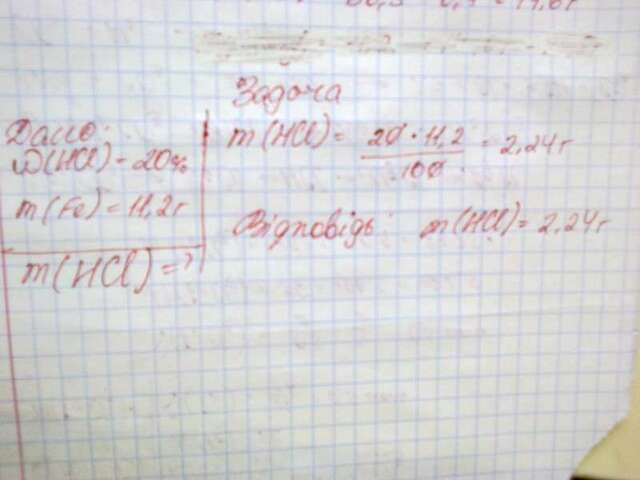 Задача
Дано:
ω(HCl) - 20%
m(Fe) = 11,2 г
m(HCl) = ?
m(HCl) = 20 · 11,2 / 100 = 2,24 г
Відповідь: m(HCl) = 2,24 г